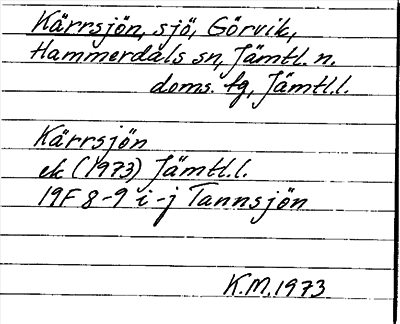 Kärrsjön, sjö, Görvik,
Hammerdals sn, Jämtl. n.
doms. fg, Jämtl.l.
Kärrsjön
ek (1973) Jämtl.l.
19F 8-9 i-j Tannsjön
K.M. 1973